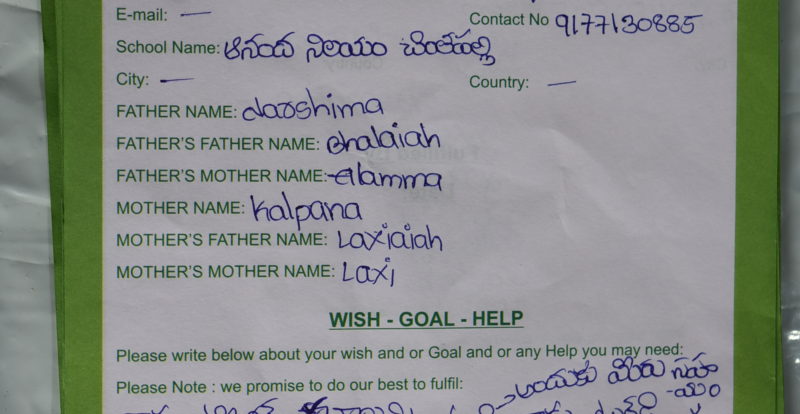 E-mail: — Contact No 9177130885
School Name: ఆనంద నిలయం చింతపల్లి
City: — Country: —
FATHER NAME: darshima
FATHER'S FATHER NAME: Bhalaiah
FATHER'S MOTHER NAME: Elamma
MOTHER NAME: Kalpana
MOTHER'S FATHER NAME: Laxiaiah
MOTHER'S MOTHER NAME: Laxi
WISH - GOAL - HELP
Please write below about your wish and or Goal and or any Help you may need:
Please Note : we promise to do our best to fulfil: అందుకు మీరు